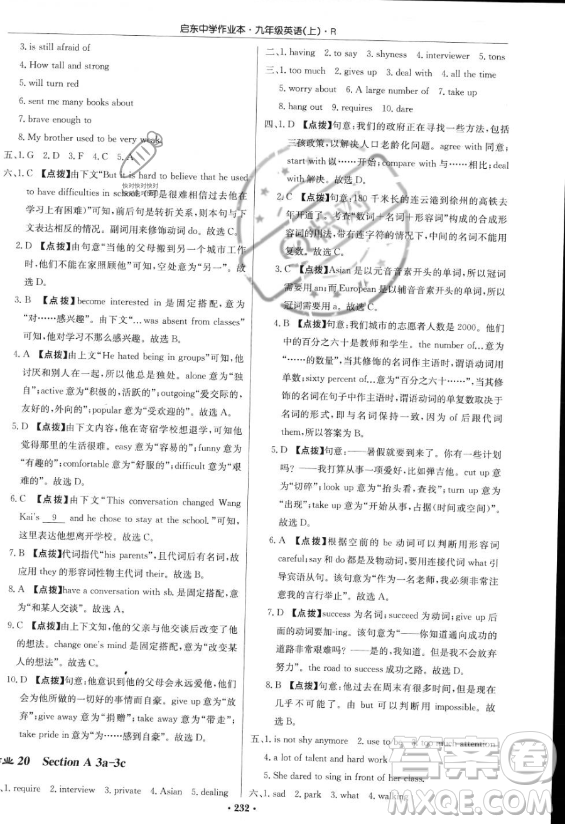 启东中学作业本·九年级英语(上)·R
3. is still afraid of
4. How tall and strong
5. will turn red
6. sent me many books about
7. brave enough to
8. My brother used to be very weak.
五、1. G 2. D 3. F 4. C 5. A
六、1. C 【点拨】由下文“But it is hard to believe that he used
to have difficulties in school.(可是很难相信过去他在
学习上有困难)”可知,前后句是转折关系,与下
文表达相反的情况。副词用来修饰动词 do。故选 C。
2. D 【点拨】由句意“当他的父母搬到另一个城市工作
时,他们不能在家照顾他”可知,空白处意为“另一个”。故
选 D。
3. B 【点拨】become interested in 是固定搭配,意为
“对……感兴趣”。由下文“…was absent from classes”
可知,他对学习不那么感兴趣。故选 B。
4. A 【点拨】由上文“He hated being in groups”可知,他
讨厌和别人在一起,因此他是独处。alone 意为“独
自”;active 意为“积极的,活跃的”;outgoing“爱交际的,
友好的,外向的”;popular 意为“受欢迎的”。故选 A。
5. D 【点拨】由下文内容,他在寄宿学校想退学,可知他
觉得那里的生活很艰难。easy 意为“容易的”;funny 意为
“有趣的”;comfortable 意为“舒服的”;difficult 意为“艰
难的”。故选 D。
6. C 【点拨】由下文“This conversation changed Wang
Kai's 9 and he chose to stay at the school.”可知,
这里表达他想离开学校。故选 C。
7. B 【点拨】代词指代“his parents”,且代词后有名词,故
应用 they 的形容词性物主代词 their。故选 B。
8. A 【点拨】have a conversation with sb. 是固定搭配,意
为“和某人交谈”。故选 A。
9. C 【点拨】由上文可知,他的父亲与他交谈后改变了他
的想法。change one's mind 是固定搭配,意为“改变某
人的想法”。故选 C。
10. D 【点拨】句意:我的父母会永远爱他,他们也
会为他所做的一切好的事情而自豪。give away 意为“放
弃”;give away 意为“捐赠”;take away 意为“带走”;
take pride in 意为“为……而自豪”。故选 D。
作业 20 Section A 3a–3c
1. require 2. interview 3. private 4. Asian 5. dealing
二、1. having 2. to say 3. shyness 4. interviewer 5. tons
三、1. too much 2. gives up 3. deal with 4. all the time
5. worry about 6. A large number of 7. such a great
8. hang out 9. requires 10. dare
四、1. D 【点拨】句意:我们的政府正在寻找一些方法,包括
三孩政策,以解决人口老龄化问题。agree with 同意;
start with 以……开始;compare with 与……相比;deal
with 解决。故选 D。
2. C 【点拨】句意:180 千米长的连云港到徐州的高铁去
年开通了。考查“数词+名词+形容词”构成的合成形
容词的用法,带有连字符的合成形容词中的名词不能用
复数。故选 C。
3. C 【点拨】Asian 是以元音音素开头的单词,所以冠词
需要用 an;而 European 是以辅音音素开头的单词,所以
冠词需要用 a。故选 C。
4. B 【点拨】句意:我们城市的志愿者人数是 2000。他们
中的百分之六十是教师和学生。the number of…意为
“……的数量”,其修饰的名词作主语时,谓语动词用单
数;sixty percent of…意为“百分之六十……”,其修饰的
名词在句子中作主语时,谓语动词的单复数取决于
名词的单复数,即与名词保持一致,因 of 后跟代词
them。所以答案为 B。
5. D 【点拨】句意:——暑假就要到来了。你有什么计划
吗?——我打算从事一项爱好,比如弹吉他。cut up 意
为“切碎”;look up 意为“查阅”;turn up 意为
“出现”;take up 意为“开始从事,占据(时间或空间)”。
故选 D。
6. A 【点拨】根据空前的 be 动词可以判断用形容词
careful;say 和 do 是动词,要用连接代词 what 引
导宾语从句。该句意为“作为一名老师,我必须非常注
意我的言行举止”。故选 A。
7. D 【点拨】success 为名词;succeed 为动词;give up 后
面动词要加-ing。该句意为“——通向成功的
道路非常艰难,不是吗?——是的,但是我不会放弃
努力。”the road to success 成功之路。故选 D。
8. D
五、1. is not shy anymore
2. a lot of talent and work hard
3. She dared to sing in front of her class.
六、1. sad 2. park 3. talking 4.
· 232 ·